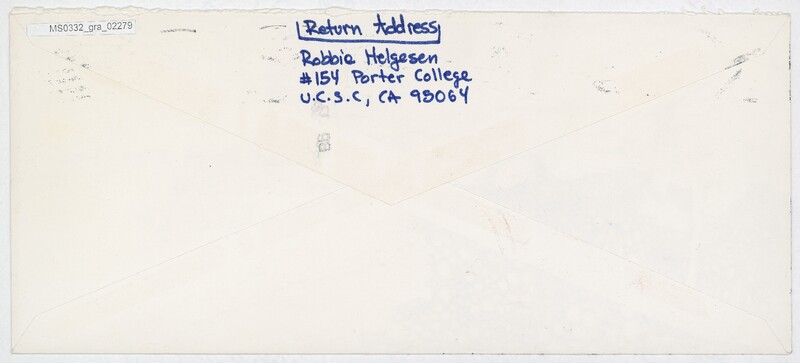 MS0332_gra_02279
Return Address
Robbie Helgesen
#154 Porter College
U.C.S.C, CA 95064